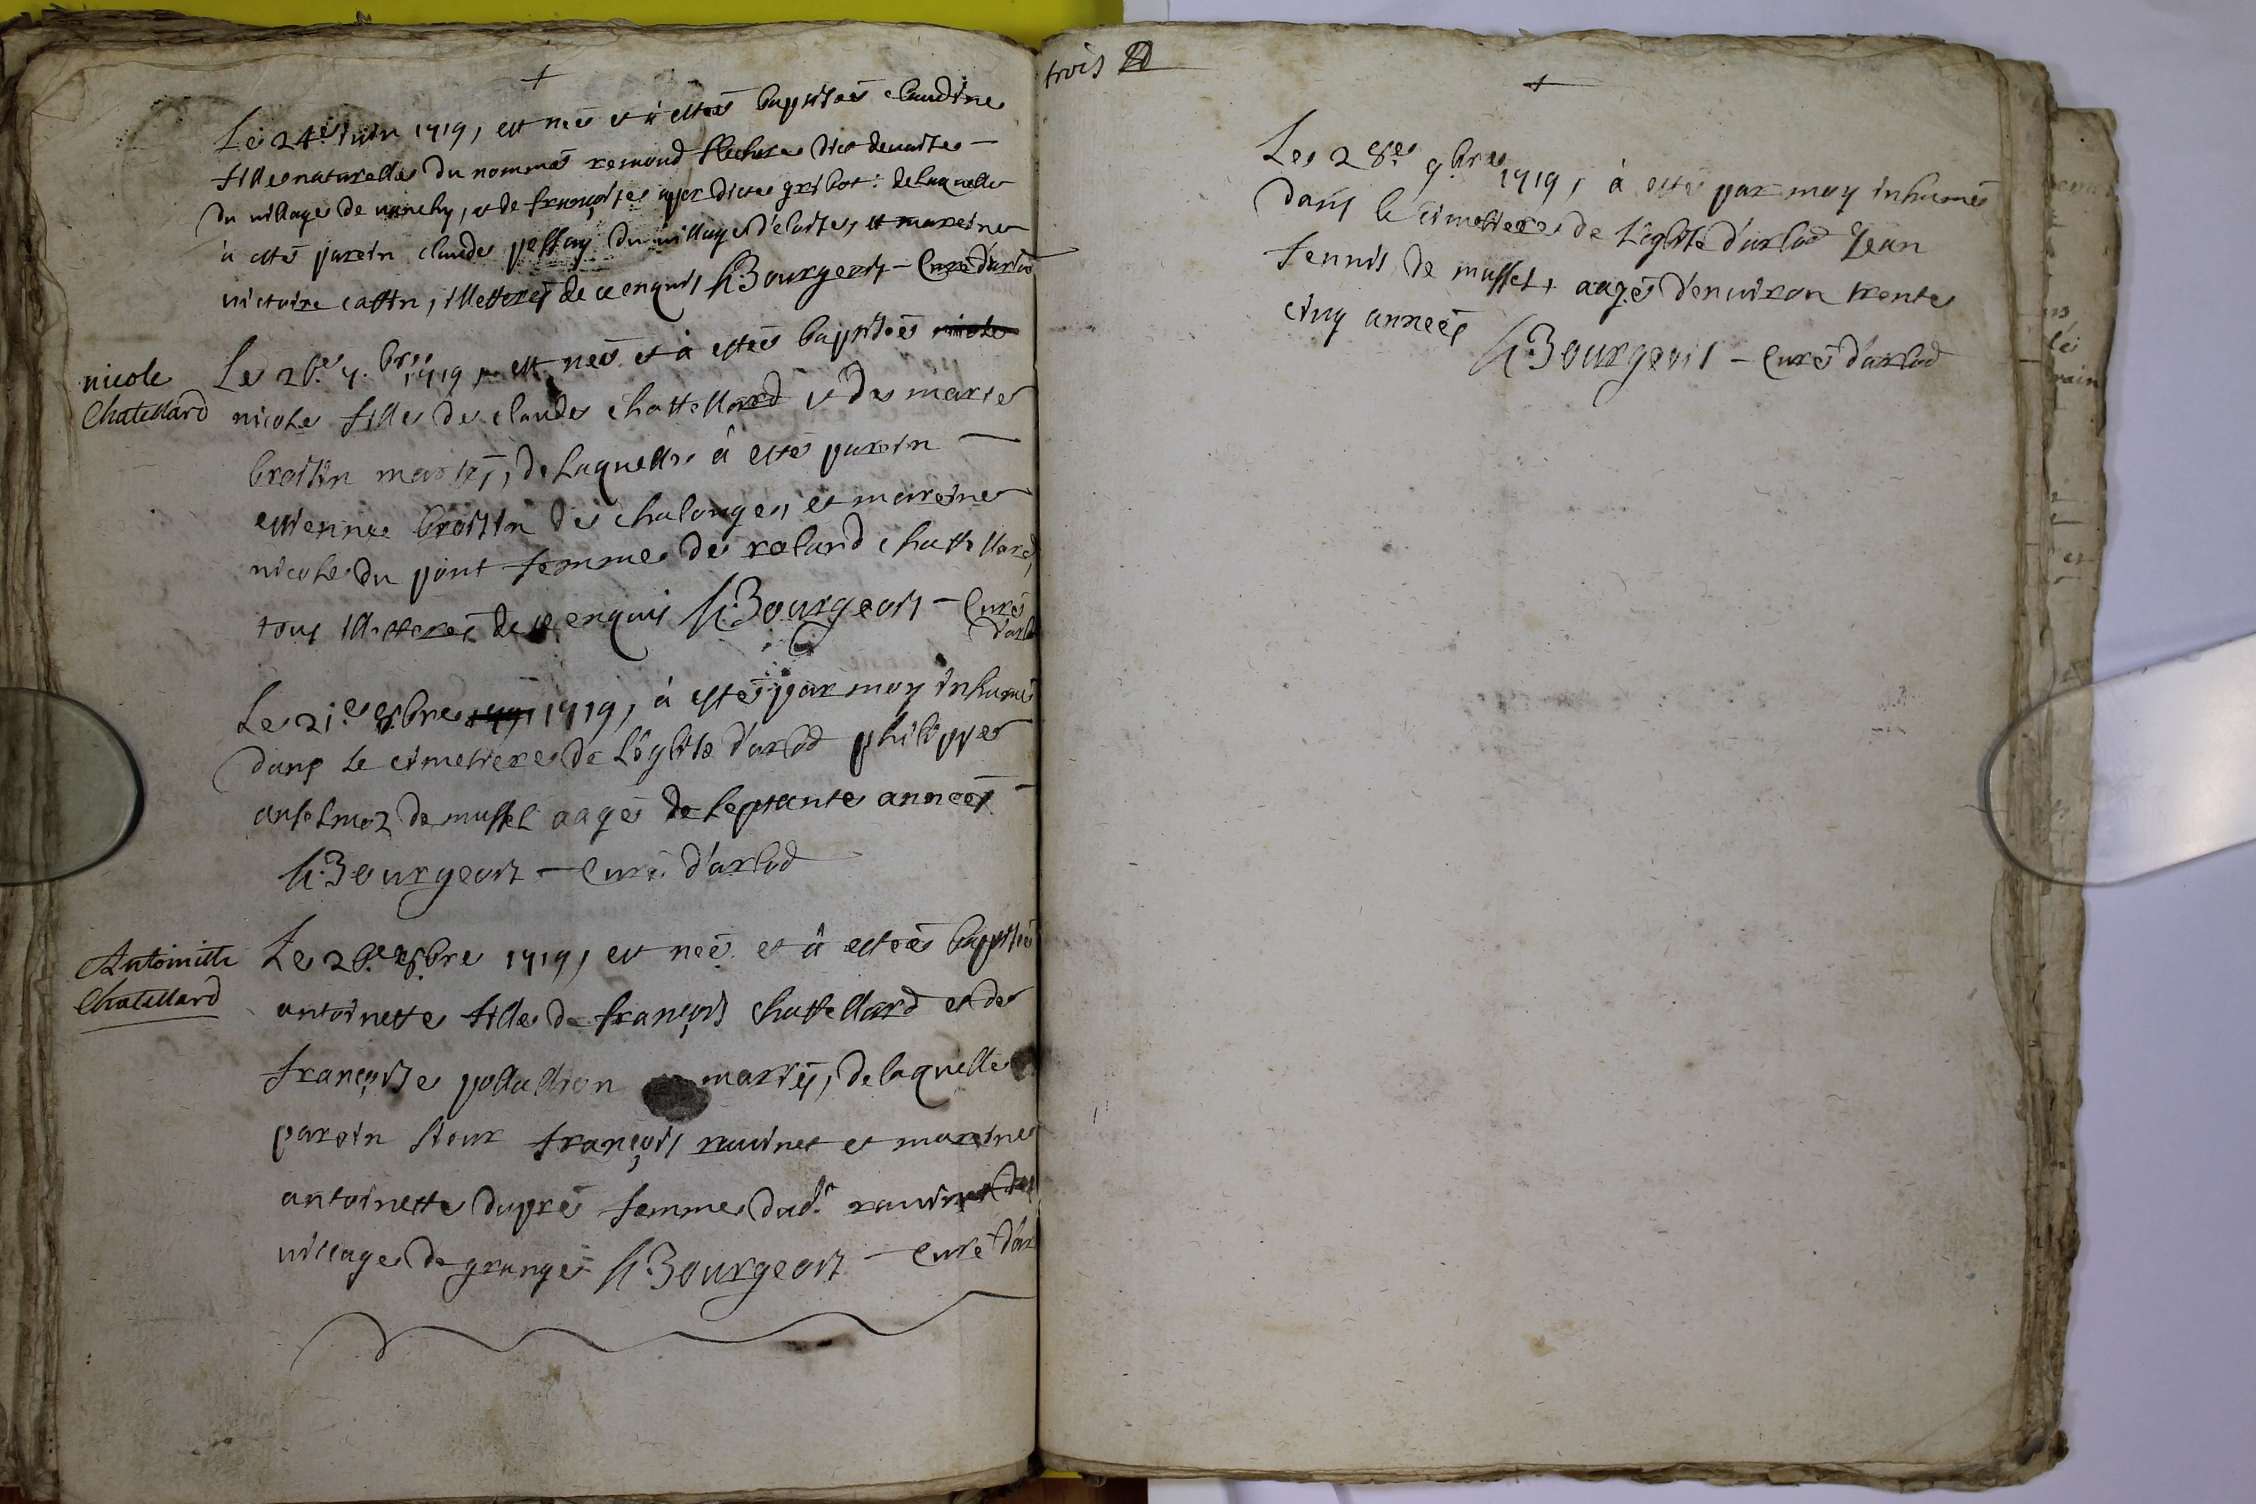 +
Le 24e iuin 1719, est neé et à esteé baptiseé claudine
fille naturelle du nommé remond flechere dict
du village de vanchy, et de françoise dicte gribot: de laquelle
à esté parein claude passay du village d'eloise, et mareine
victoire caffin, illetteréz de ce enquis h:Bourgeois – Curé d'arlod
nicole
Chatellard
Le 26e 7.bre 1719, est neé et à esteé baptiseé nicole
nicole fille de claude chattellard et de marie
broissin mariéz, de laquelle à esté parein –
estienne broissin de chalonges, et mareine
nicole du pont femme de roland chattellard,
tous illetteréz de ce enquis h:Bourgeois – Curé
d'arlod
Le 21e 8bre 1719, à esté par moy inhumé
dans le cimetiere de l'église d'arlod philippe
anselmoz de mussel aagé de septante années –
h:Bourgeois – Curé d'arlod
Antoinette
Chatellard
Le 26e 8bre 1719, est neé et à esteé baptiseé
antoinette fille de françois chattellard et de
françoise pollallion mariéz, de laquelle
parein sieur françois ravinet et mareine
antoinette dupré femme dud.t ravinet du
village de grange h:Bourgeois – Curé d'ar
trois
+
Le 28e 9bre 1719, à esté par moy inhumé
dans le cimetiere de l'église d'arlod Jean
fennis de mussel, aagé d'environ trente
cinq années
h:Bourgeois – Curé d'arlod